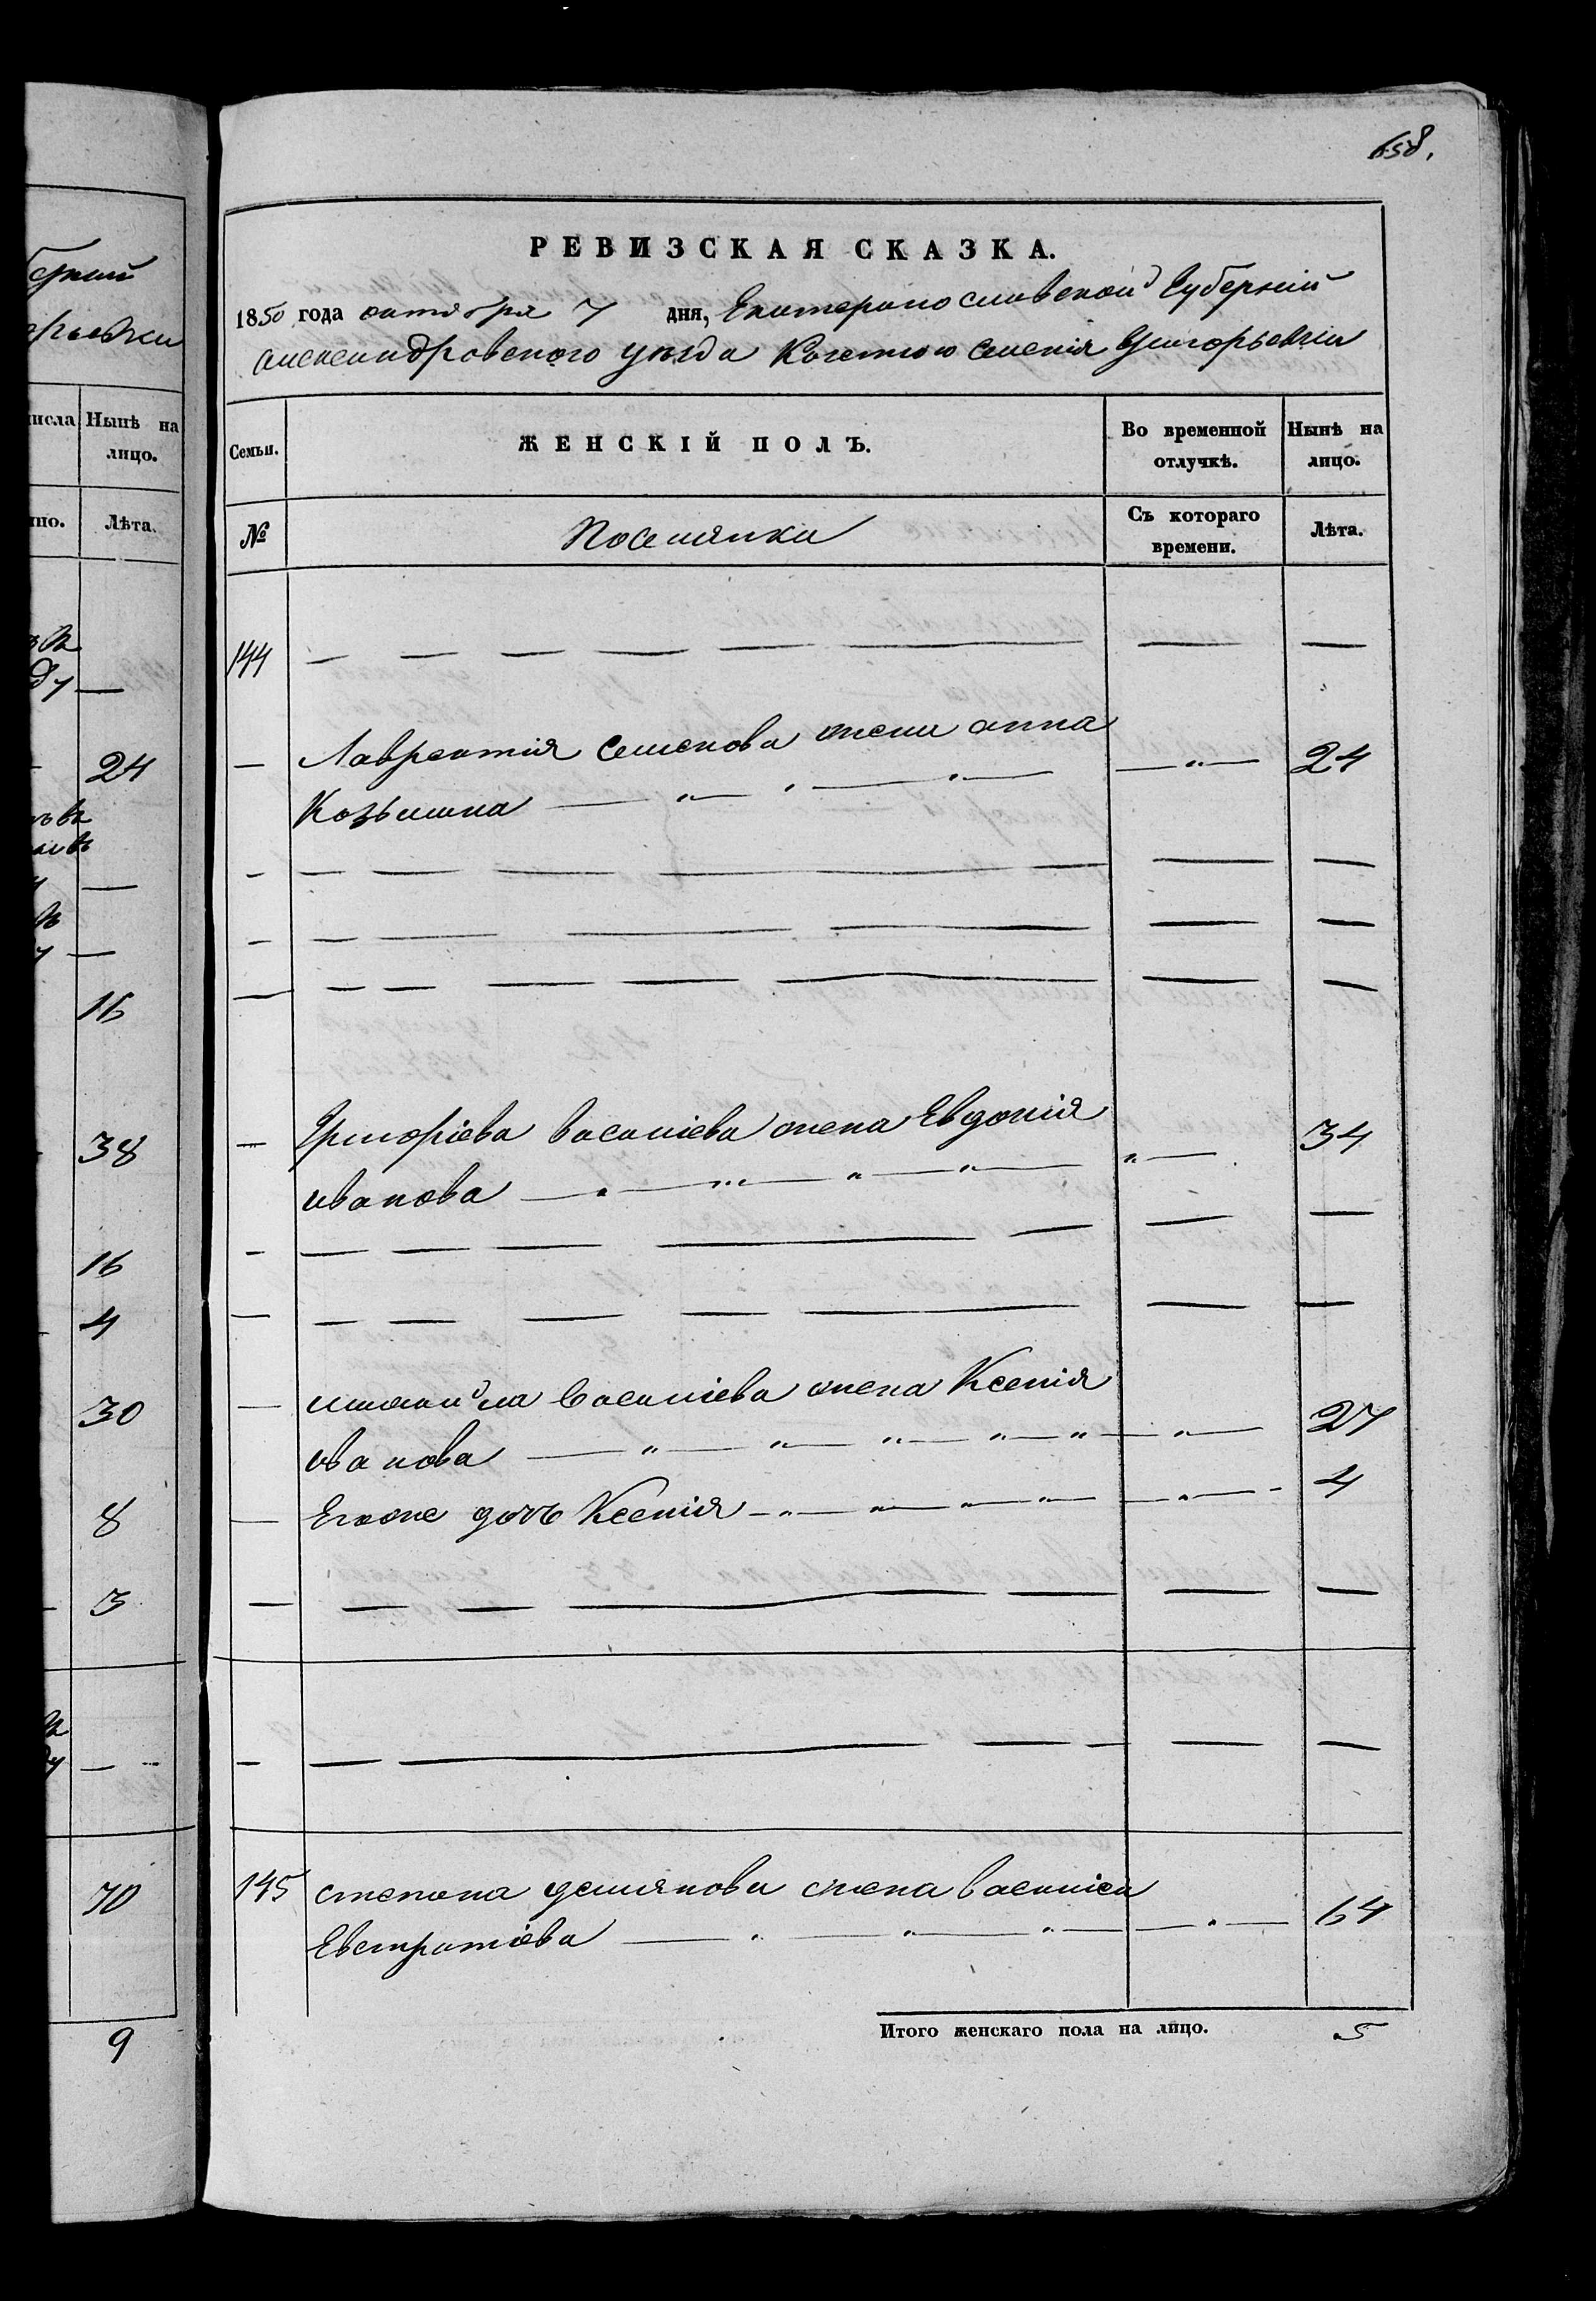 658.
РЕВИЗСКАЯ СКАЗКА.
1850 года октября 7 дня, Екатеринославской Губерніи
александровского уезда Казенного селенія Григорьевки
Семьи.
ЖЕНСКІЙ ПОЛЪ.
Во временной отлучкѣ.
Нынѣ на лицо.
№
Поселянки
Съ котораго времени.
Лѣта.
144 — — — — — — — —
— Лаврентія Семенова жена анна
Козьмина — „ — „ — — „ — 24
— — — — — — —
— — — — — —
— — — — — — — —
— Григоріева василіева жена Евдокія
иванова — „ — „ — „ — „ — „ — 34
— — — — — — — —
— — — — — — — —
— михаила василіева жена Ксенія
ивановa — „ — „ — „ — „ — „ — „ — 27
— Егоже дочь Ксенія — „ — „ — „ — „ — „ — 4
— — — — — — —
— — — — — — —
145 степана демянова жена василиса
Евстратіева — „ — „ — „ — „ — 64
Итого женскаго пола на лицо. 5
Нынѣ на лицо.
Лѣта.
24
16
38
16
4
30
8
3
70
9